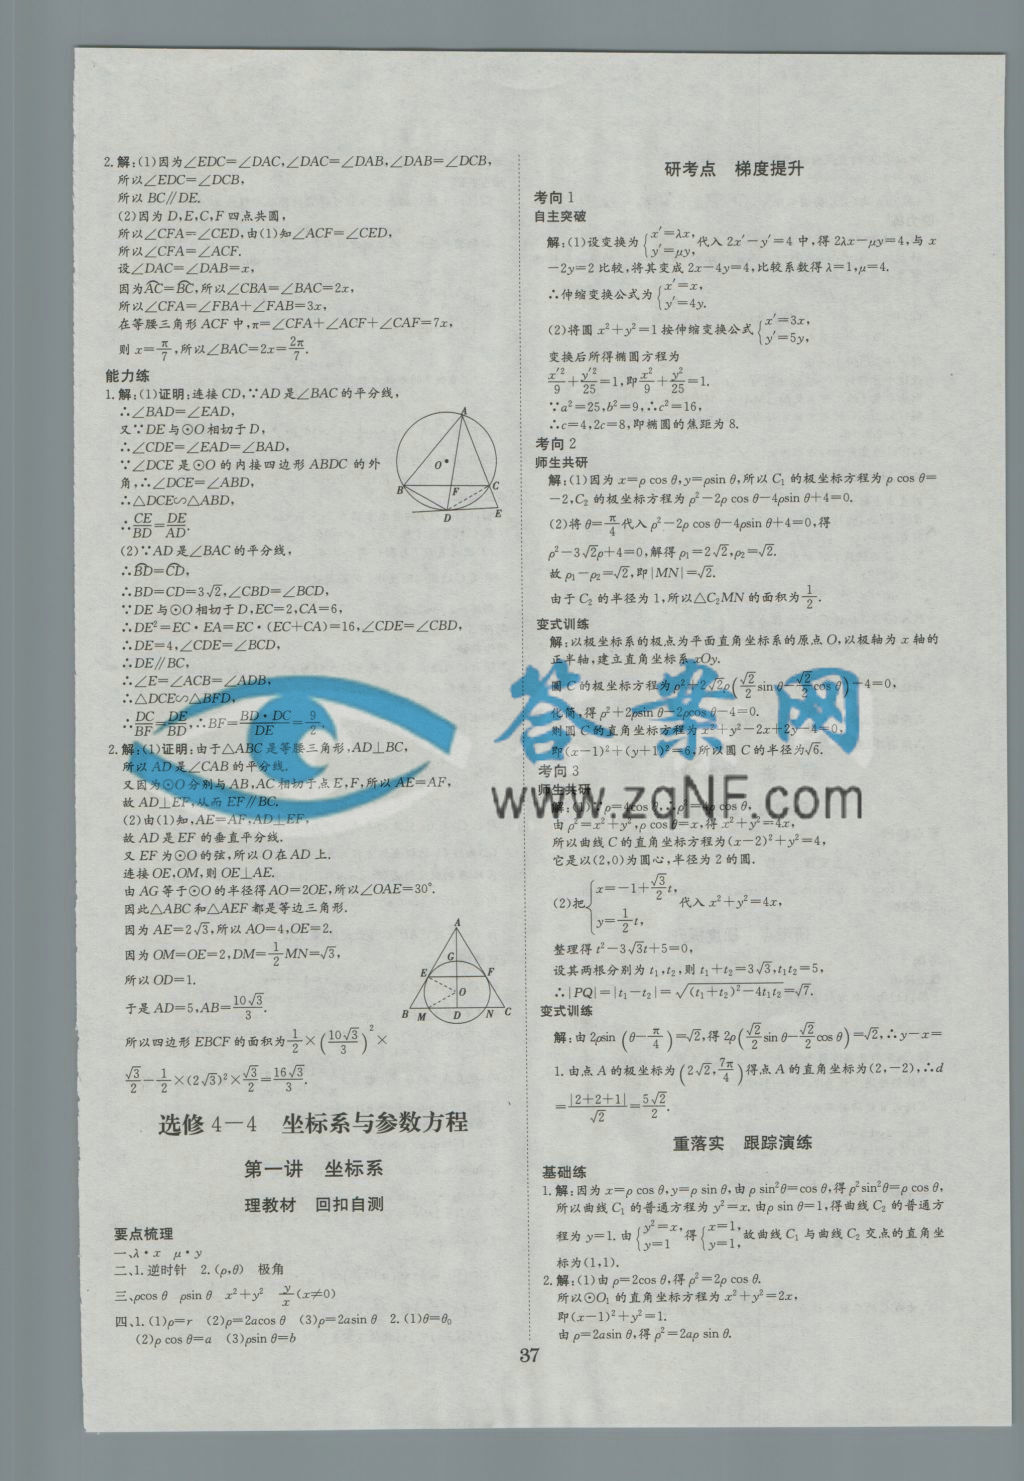 2.解:(1)因为∠EDC=∠DAC,∠DAC=∠DAB,∠DAB=∠DCB,
所以∠EDC=∠DCB,
所以 BC∥DE.
(2)因为 D,E,C,F 四点共圆,
所以∠CFA=∠CED,由(1)知∠ACF=∠CED,
所以∠CFA=∠ACF.
设∠DAC=∠DAB=x,
因为AC=BC,所以∠CBA=∠BAC=2x,
所以∠CFA=∠FBA+∠FAB=3x,
在等腰三角形 ACF 中,π=∠CFA+∠ACF+∠CAF=7x,
则 x=π/7,所以∠BAC=2x=2π/7.
能力练
1.解:(1)证明:连接 CD,∵AD 是∠BAC 的平分线,
∴∠BAD=∠EAD,
又∵DE 与⊙O 相切于 D,
∴∠CDE=∠EAD=∠BAD,
∵∠DCE 是⊙O 的内接四边形 ABDC 的外
角,∴∠DCE=∠ABD,
∴△DCE∽△ABD,
∴CE/BD=DE/AD.
(2)∵AD 是∠BAC 的平分线,
∴BD=CD,
∴BD=CD=3√2,∠CBD=∠BCD,
∵DE 与⊙O 相切于 D,EC=2,CA=6,
∴DE²=EC·EA=EC·(EC+CA)=16,∠CDE=∠CBD,
∴DE=4,∠CDE=∠BCD,
∴DE∥BC,
∴∠E=∠ACB=∠ADB,
∴△DCE∽△BFD,
∴DC/BF=DE/BD,∴BF=BD·DC/DE=9/2.
2.解:(1)证明:由于△ABC 是等腰三角形,AD⊥BC,
所以 AD 是∠CAB 的平分线.
又因为⊙O 分别与 AB,AC 相切于点 E,F,所以 AE=AF,
故 AD⊥EF,从而 EF∥BC.
(2)由(1)知,AE=AF,AD⊥EF,
故 AD 是 EF 的垂直平分线.
又 EF 为⊙O 的弦,所以 O 在 AD 上.
连接 OE,OM,则 OE⊥AE.
由 AG 等于⊙O 的半径得 AO=2OE,所以∠OAE=30°.
因此△ABC 和△AEF 都是等边三角形.
因为 AE=2√3,所以 AO=4,OE=2.
因为 OM=OE=2,DM=1/2 MN=√3,
所以 OD=1.
于是 AD=5,AB=10√3/3.
所以四边形 EBCF 的面积为 1/2×(10√3/3)²×
√3/2-1/2×(2√3)²×√3/2=16√3/3.
选修 4-4 坐标系与参数方程
第一讲 坐标系
理教材 回扣自测
要点梳理
一、λ·x μ·y
二、1.逆时针 2.(ρ,θ) 极角
三、ρcos θ ρsin θ x²+y² y/x(x≠0)
四、1.(1)ρ=r (2)ρ=2acos θ (3)ρ=2asin θ 2.(1)θ=θ₀
(2)ρ cos θ=a (3)ρsin θ=b
研考点 梯度提升
考向 1
自主突破
解:(1)设变换为{x′=λx, y′=μy,代入 2x′-y′=4 中,得 2λx-μy=4,与 x
-2y=2 比较,将其变成 2x-4y=4,比较系数得 λ=1,μ=4.
∴伸缩变换公式为{x′=x, y′=4y.
(2)将圆 x²+y²=1 按伸缩变换公式{x′=3x, y′=5y,
变换后所得椭圆方程为
x′²/9+y′²/25=1,即x²/9+y²/25=1.
∵a²=25,b²=9,∴c²=16,
∴c=4,2c=8,即椭圆的焦距为 8.
考向 2
师生共研
解:(1)因为 x=ρ cos θ,y=ρsin θ,所以 C₁ 的极坐标方程为 ρ cos θ=
-2,C₂ 的极坐标方程为 ρ²-2ρ cos θ-4ρsin θ+4=0.
(2)将 θ=π/4代入 ρ²-2ρ cos θ-4ρsin θ+4=0,得
ρ²-3√2ρ+4=0,解得 ρ₁=2√2,ρ₂=√2.
故 ρ₁-ρ₂=√2,即|MN|=√2.
由于 C₂ 的半径为 1,所以△C₂MN 的面积为1/2.
变式训练
解:以极坐标系的极点为平面直角坐标系的原点 O,以极轴为 x 轴的
正半轴,建立直角坐标系 xOy.
圆 C 的极坐标方程为 ρ²+2√2ρ(√2/2 sin θ-√2/2 cos θ)-4=0,
化简,得 ρ²+2ρsin θ-2ρcos θ-4=0.
则圆 C 的直角坐标方程为 x²+y²-2x+2y-4=0,
即(x-1)²+(y+1)²=6,所以圆 C 的半径为√6.
考向 3
师生共研
解:(1)∵ρ=4cos θ,∴ρ²=4ρ cos θ,
由 ρ²=x²+y²,ρ cos θ=x,得 x²+y²=4x,
所以曲线 C 的直角坐标方程为(x-2)²+y²=4,
它是以(2,0)为圆心,半径为 2 的圆.
(2)把{x=-1+√3/2 t, y=1/2 t, 代入 x²+y²=4x,
整理得 t²-3√3t+5=0,
设其两根分别为 t₁,t₂,则 t₁+t₂=3√3,t₁t₂=5,
∴|PQ|=|t₁-t₂|=√((t₁+t₂)²-4t₁t₂)=√7.
变式训练
解:由 2ρsin(θ-π/4)=√2,得 2ρ(√2/2 sin θ-√2/2 cos θ)=√2,∴y-x=
1.由点 A 的极坐标为(2√2,7π/4)得点 A 的直角坐标为(2,-2),∴d
=|2+2+1|/√2=5√2/2.
重落实 跟踪演练
基础练
1.解:因为 x=ρ cos θ,y=ρ sin θ,由 ρ sin²θ=cos θ,得 ρ²sin²θ=ρ cos θ,
所以曲线 C₁ 的普通方程为 y²=x.由ρ sin θ=1,得曲线 C₂ 的普通方
程为 y=1.由{y²=x, y=1得{x=1, y=1,故曲线 C₁ 与曲线 C₂ 交点的直角坐
标为(1,1).
2.解:(1)由 ρ=2cos θ,得 ρ²=2ρ cos θ.
所以⊙O₁ 的直角坐标方程为 x²+y²=2x,
即(x-1)²+y²=1.
由 ρ=2asin θ,得 ρ²=2aρ sin θ.
37
答案网
www.zqNF.com
A
O
B
F
C
D
E
A
G
E
F
O
B M D N C